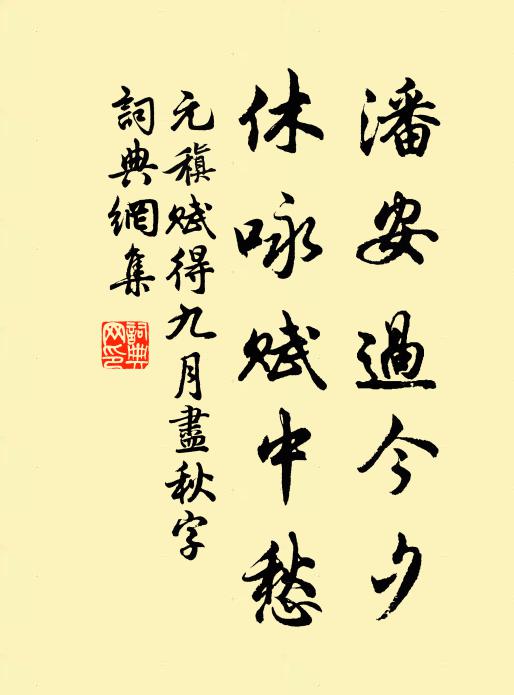 潘安過今夕
休咏賦中愁
元稹賦得九月盡秋字
詞典網集
詞典网印